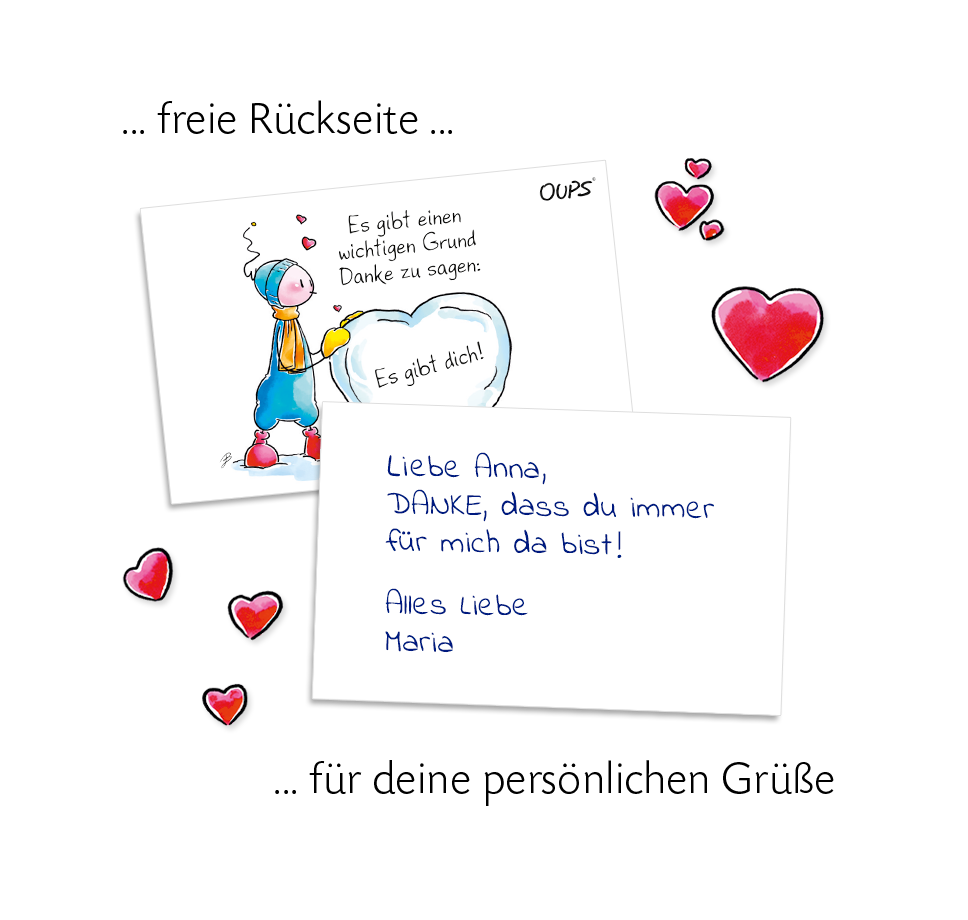 ... freie Rückseite ...
OUPS®
Es gibt einen
wichtigen Grund
Danke zu sagen:
Es gibt dich!
Liebe Anna,
DANKE, dass du immer
für mich da bist!
Alles Liebe
Maria
... für deine persönlichen Grüße